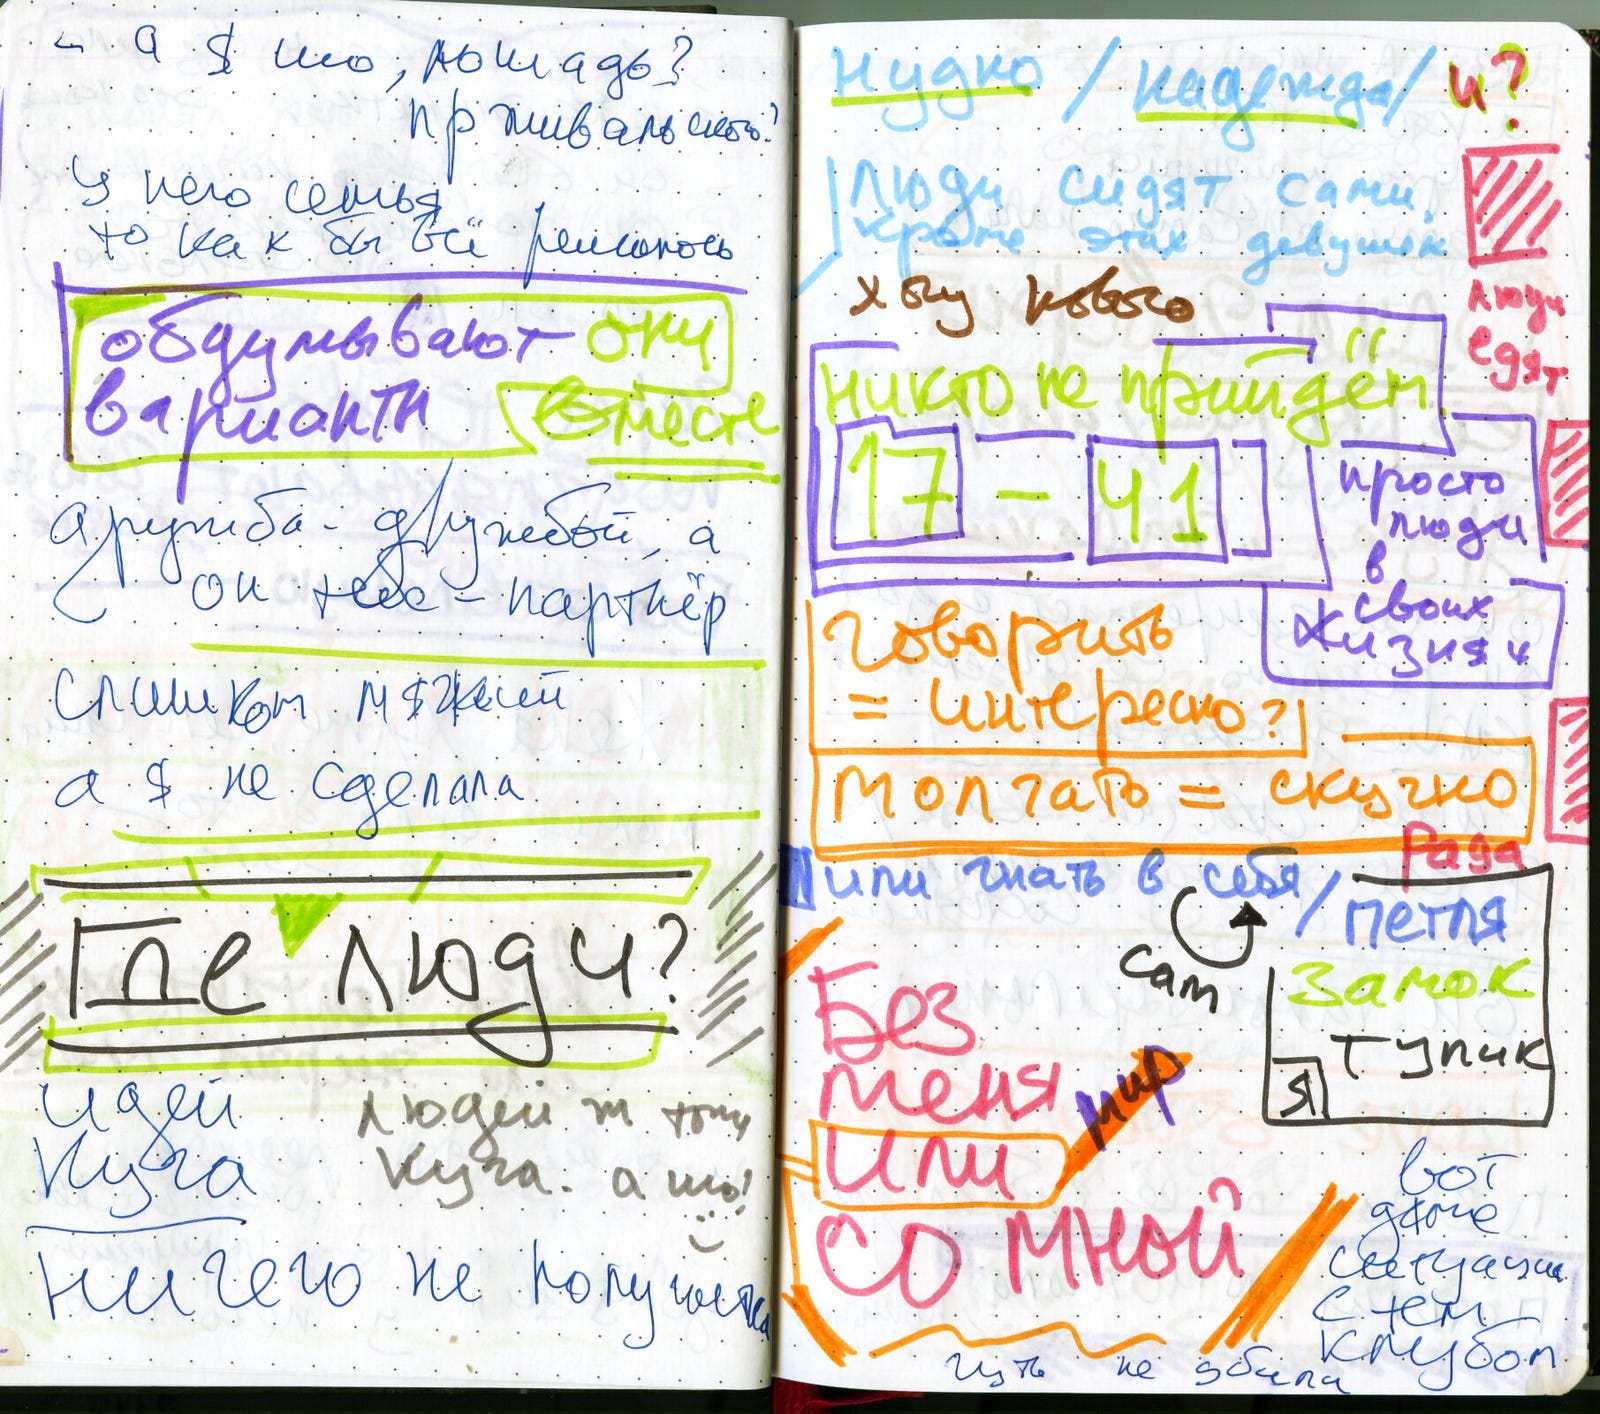 - а я шо, лошадь?
пржевальского?
у него семья
то как бы всё решилось
обдумывают они
варианты вместе
дружба - дружбой, а
он тебе - партнёр
слишком мягкий
а я не сделала
Где люди?
идей
куча
людей ж тому
куча. а шо!
ничего не получится
нудно / надежда / и?
люди сидят сами,
кроме этих девушек
хочу нового
люди
едят
никто не прийдёт
17 - 41
просто
люди
в
своих
жизнях
говорить
= интересно?
молчать = скучно
Рада
или гнать в себя / петля
сам
замок
тупик
я
Без
меня
или
мир
со мной
вот
даже
ситуация
с тем
клубом
чуть не убила